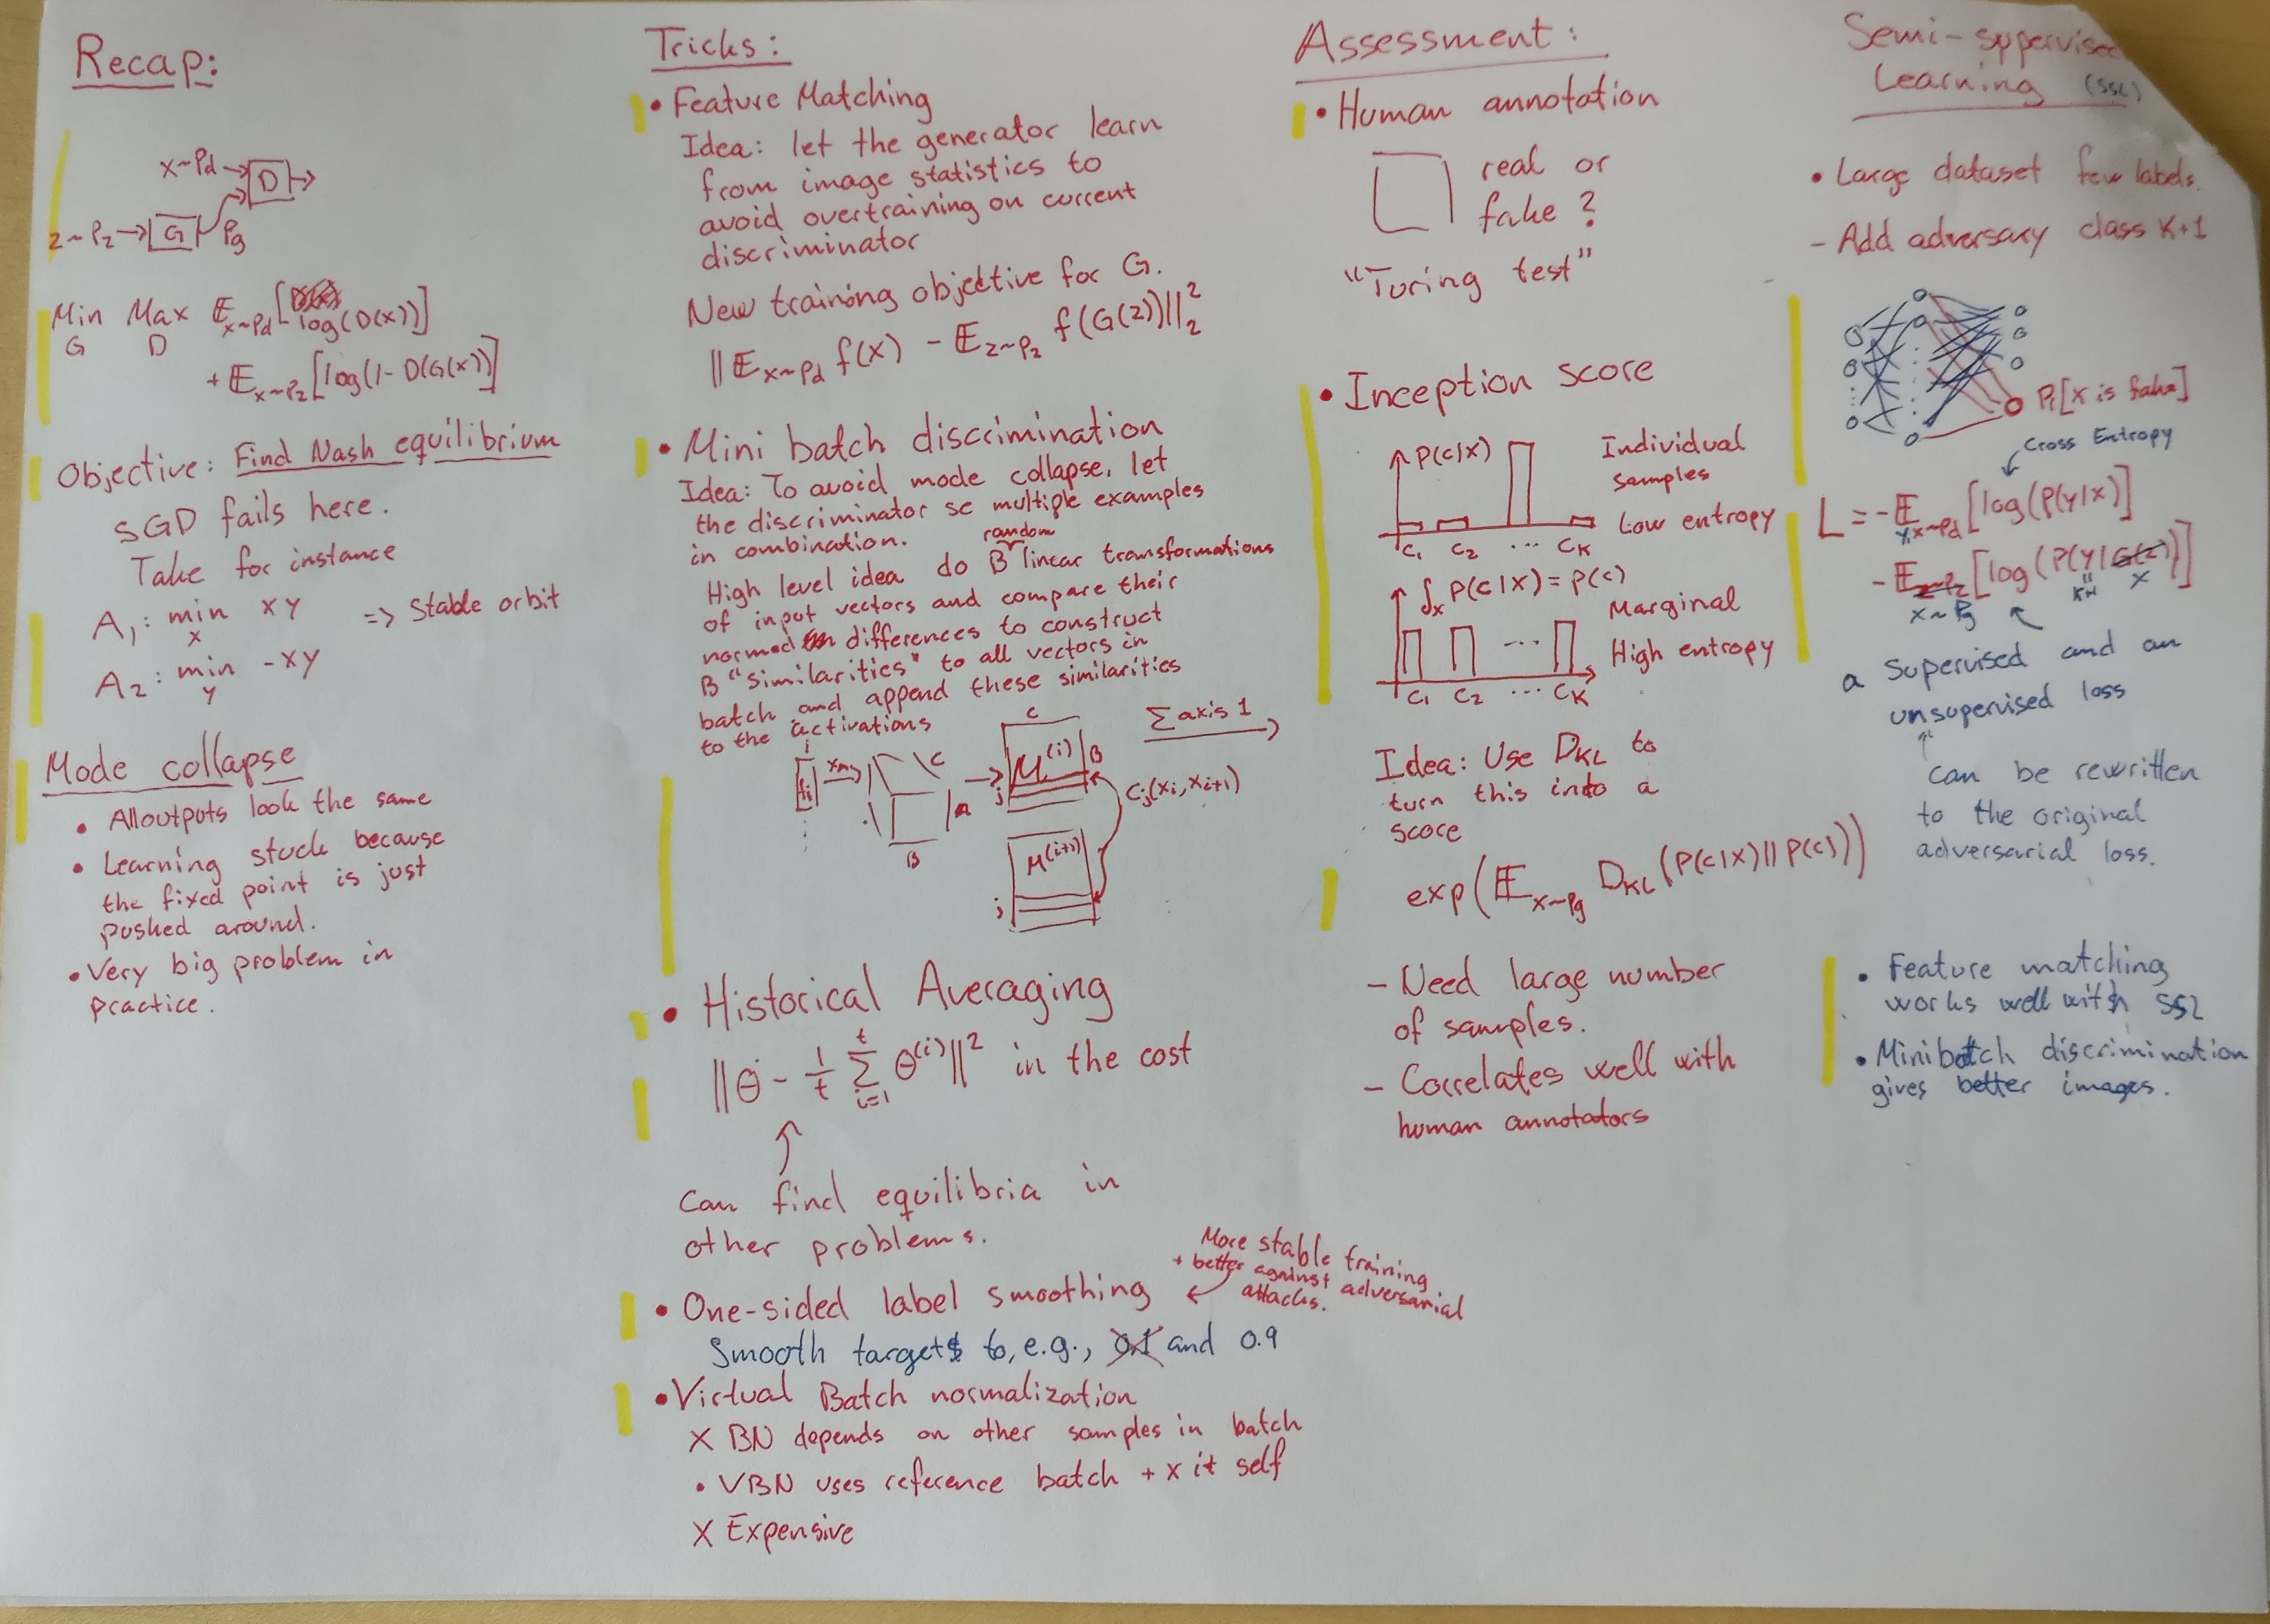 Recap:
x~Pd → D →
z~Pz → G Pg
Min Max 𝔼x~Pd [log(D(x))]
G D
+ 𝔼x~Pz [log(1- D(G(x))]
Objective: Find Nash equilibrium
SGD fails here.
Take for instance
A1: min xy => Stable orbit
x
A2: min -xy
y
Mode collapse
• All outputs look the same
• Learning stuck because
the fixed point is just
pushed around.
• Very big problem in
practice.
Tricks:
• Feature Matching
Idea: let the generator learn
from image statistics to
avoid overtraining on current
discriminator
New training objective for G.
||𝔼x~Pd f(x) - 𝔼z~Pz f(G(z))||²₂
• Mini batch discrimination
Idea: To avoid mode collapse, let
the discriminator se multiple examples
in combination.
random
High level idea do B linear transformations
of input vectors and compare their
normed differences to construct
B "similarities" to all vectors in
batch and append these similarities
to the activations
C
Σ axis 1
C M(i) B
j
A
B
Cj(xi, xi+1)
M(i+1)
j
• Historical Averaging
||θ - 1/t Σ θ(i)||² in the cost
t
i=1
Can find equilibria in
other problems.
More stable training
+ better against adversarial
attacks.
• One-sided label smoothing ←
Smooth targets to, e.g., 0.1 and 0.9
• Virtual Batch normalization
X BN depends on other samples in batch
• VBN uses reference batch + x it self
X Expensive
Assessment:
• Human annotation
real or
fake ?
"Turing test"
• Inception score
P(c|x) Individual
samples
Low entropy
C1 C2 ... CK
∫x P(c|x) = P(c)
Marginal
High entropy
C1 C2 ... CK
Idea: Use DKL to
turn this into a
score
exp(𝔼x~Pg DKL(P(c|x) || P(c)))
- Need large number
of samples.
- Correlates well with
human annotators
Semi-supervised
Learning (SSL)
• Large dataset few labels.
- Add adversary class K+1
P[x is fake]
Cross Entropy
L = -𝔼y,x~Pd [log(P(y|x)]
- 𝔼z~Pz [log(P(y|G(z))]
x~Pg
"
K+1
x
a supervised and an
unsupervised loss
can be rewritten
to the original
adversarial loss.
• Feature matching
works well with SSL
• Minibatch discrimination
gives better images.